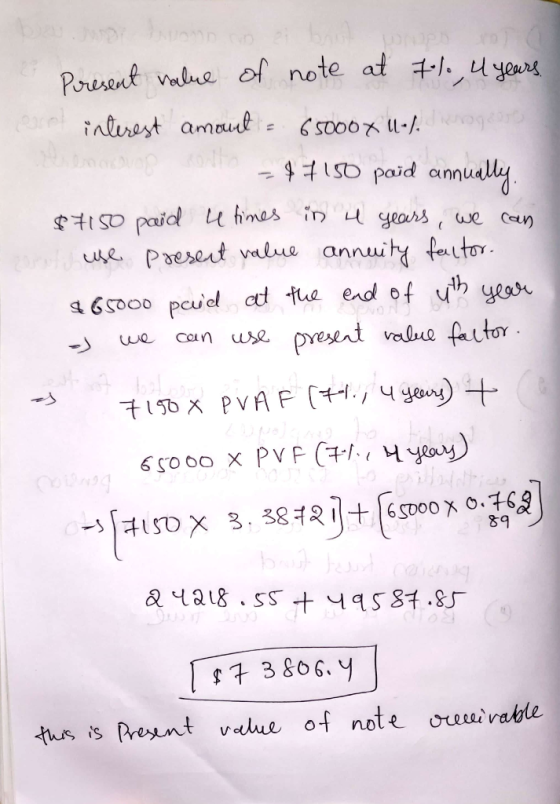 Present value of note at 7%, 4 years
interest amount = 65000 x 11%
= $7150 paid annually.
$7150 paid 4 times in 4 years, we can
use present value annuity factor.
$65000 paid at the end of 4th year
=> we can use present value factor.
=> 7150 X PVAF (7%, 4 years) +
65000 X PVF (7%, 4 years)
=> [7150 X 3.38721] + [65000 X 0.76289]
24218.55 + 49587.85
$73806.4
this is Present value of note receivable